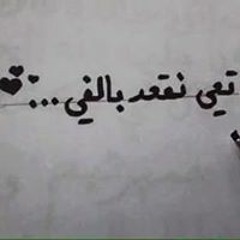 تعي نقعد بالفي ...